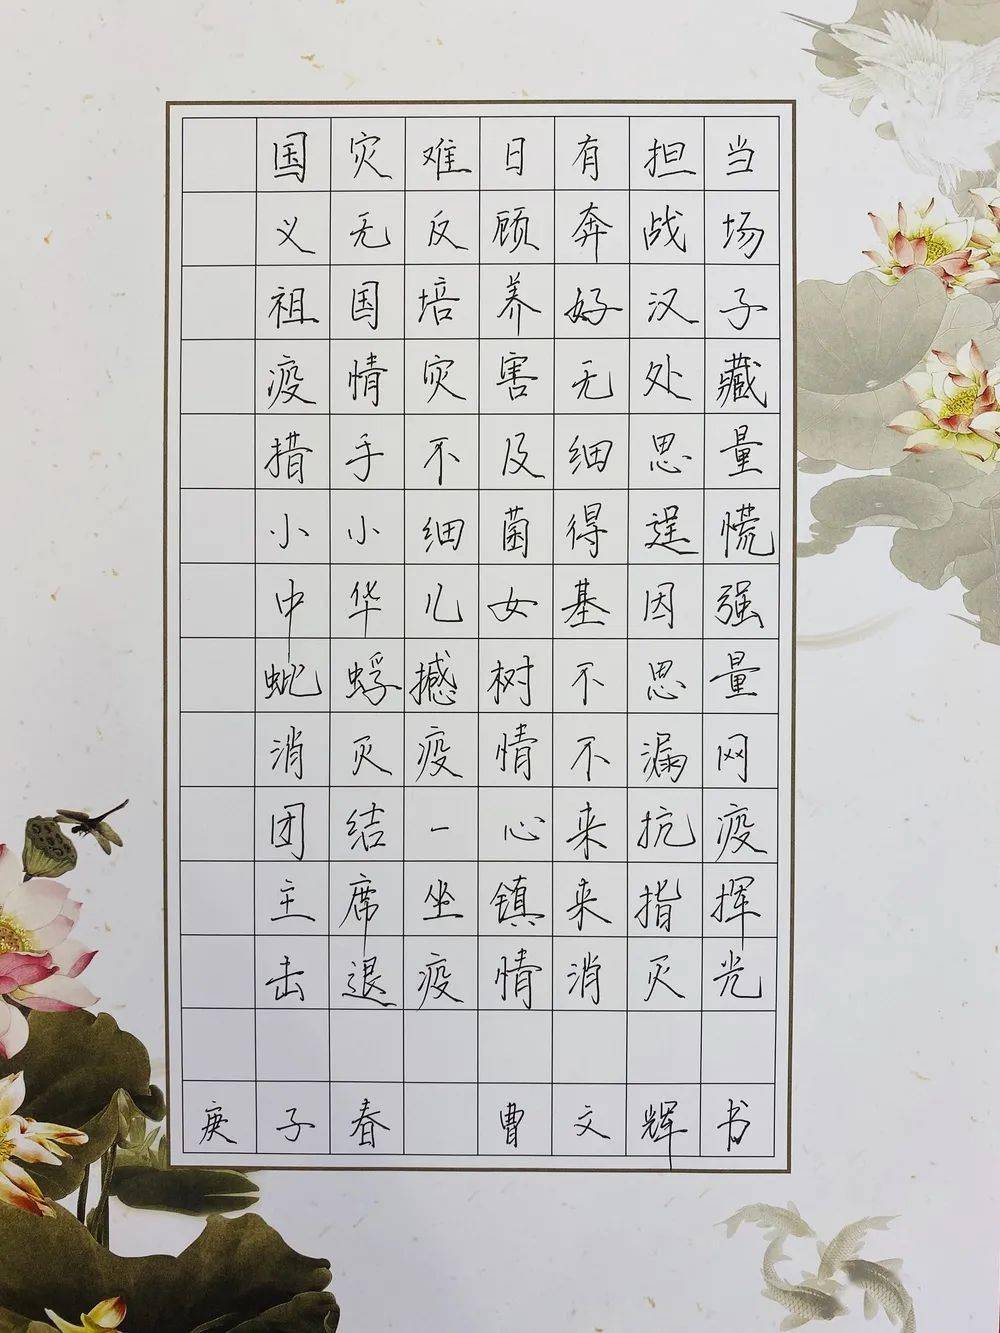 国灾难日有担当
义无反顾奔战场
祖国培养好汉子
疫情灾害无处藏
措手不及细思量
小小细菌得逞慌
中华儿女基因强
蚍蜉撼树不思量
消灭疫情不漏网
团结一心来抗疫
主席坐镇来指挥
击退疫情消灭光
庚子春 曹文辉书